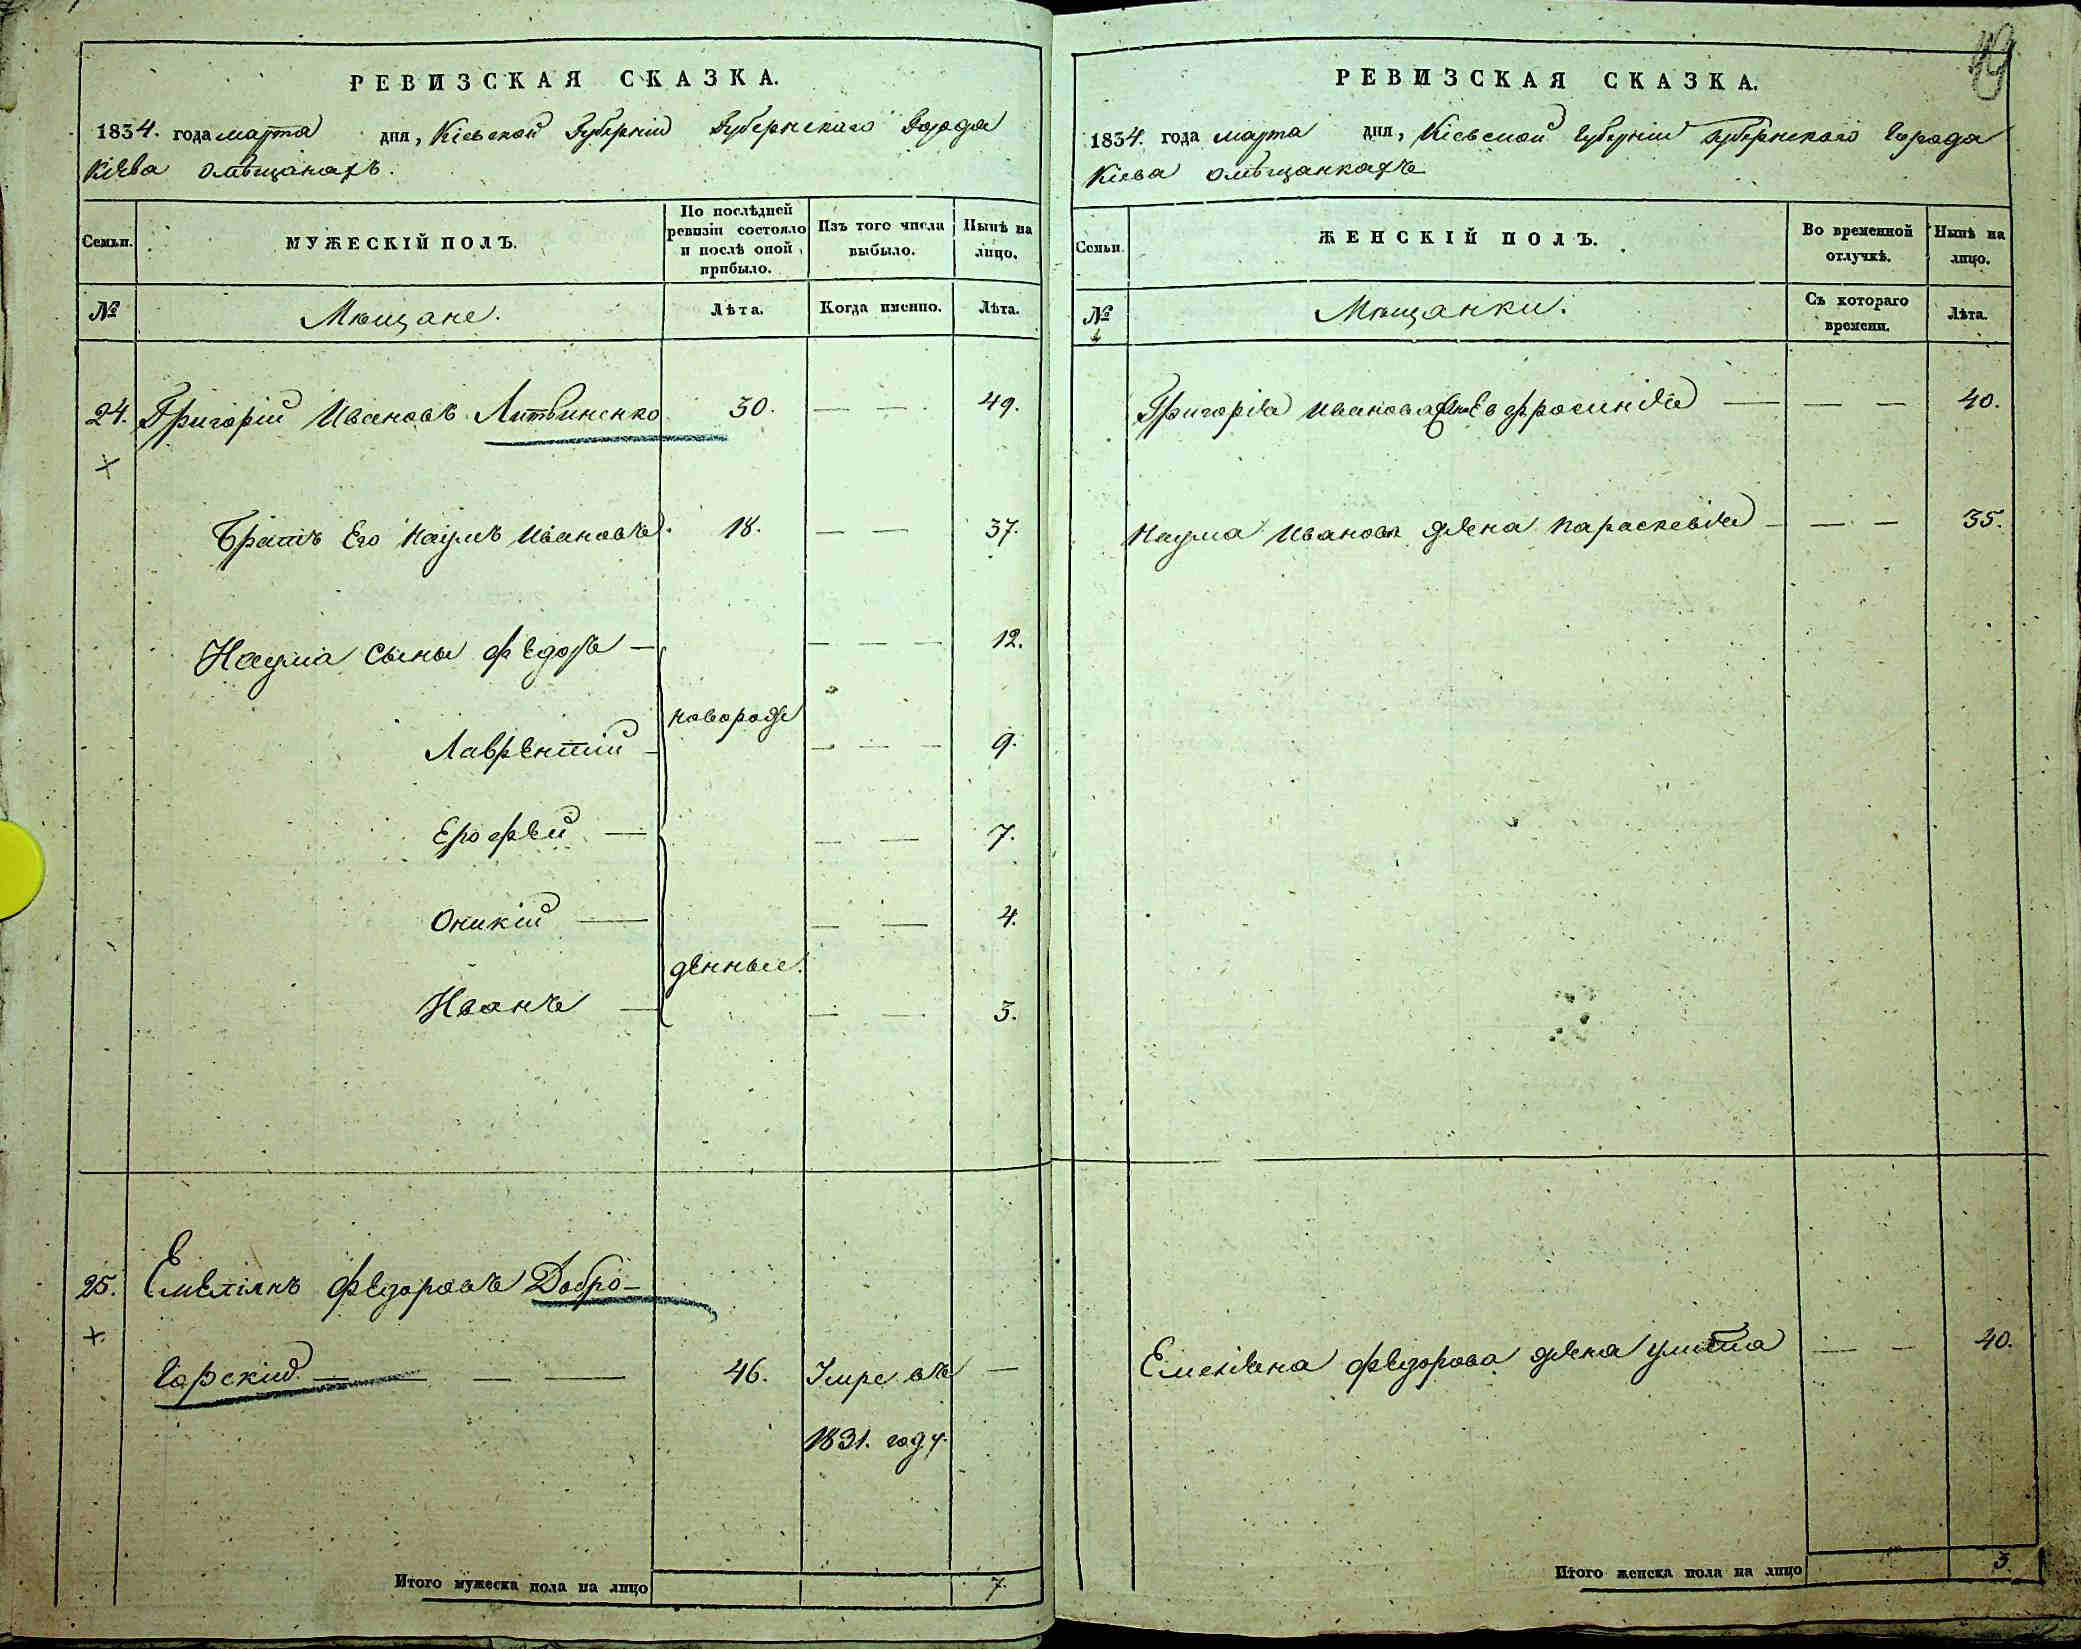 РЕВИЗСКАЯ СКАЗКА.
1834. года марта дня, Кіевской Губерніи Губернскаго Города
Кіева омѣщанахъ.
Семьи.
МУЖЕСКІЙ ПОЛЪ.
По послѣдней
ревизіи состояло
и послѣ оной
прибыло.
Изъ того числа
выбыло.
Нынѣ на
лицо.
№
Мѣщане.
Лѣта.
Когда именно.
Лѣта.
24. Григорій Ивановъ Литвиненко 30. — — 49.
Братъ Его Наумъ Ивановъ. 18. — — 37.
Наума Сыны Федоръ — — — — 12.
новорож
Лаврентій — — — — 9.
Ерофей — — — 7.
Оникій — — — 4.
денные.
Иванъ — — — 3.
25. Емеліянъ Федоровъ Добро-
горскій — — — — 46. Умре въ —
1831. году.
Итого мужеска пола на лицо 7.
РЕВИЗСКАЯ СКАЗКА.
1834. года марта дня, Кіевской Губерніи Губернского Города
Кіева омѣщанкахъ
Семьи.
ЖЕНСКІЙ ПОЛЪ.
Во временной
отлучкѣ.
Нынѣ на
лицо.
№
Мѣщанки.
Съ котораго
времени.
Лѣта.
Григорія Иванова Жена Евфросинія — — — — 40.
Наума Иванова жена Параскевія — — — 35.
Емеліяна Федорова жена Улита — — 40.
Итого женска пола на лицо 3.